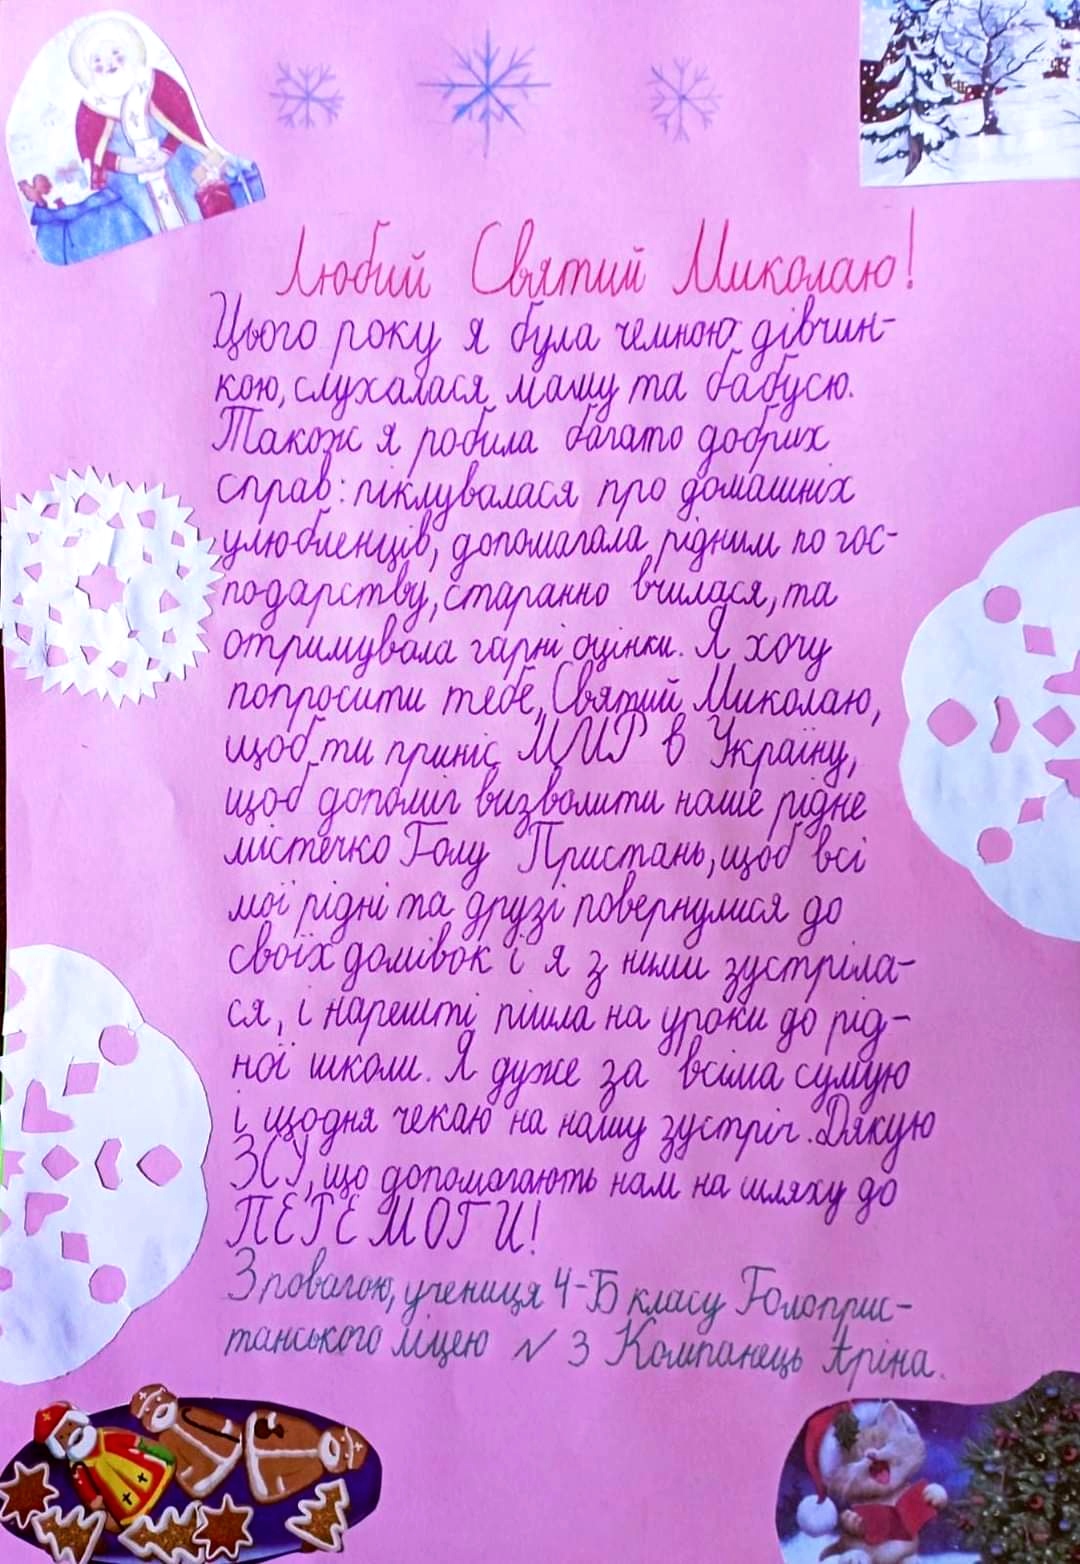 Любий Святий Миколаю!
Цього року я була чемною дівчин-
кою, слухалася маму та бабусю.
Також я робила багато добрих
справ: піклувалася про домашніх
улюбленців, допомагала рідним по гос-
подарству, старанно вчилася, та
отримувала гарні оцінки. Я хочу
попросити тебе, Святий Миколаю,
щоб ти приніс МИР в Україну,
щоб допоміг визволити наше рідне
містечко Голу Пристань, щоб всі
мої рідні та друзі повернулися до
своїх домівок і я з ними зустріла-
ся, і нарешті пішла на уроки до рід-
ної школи. Я дуже за всіма сумую
і щодня чекаю на нашу зустріч. Дякую
ЗСУ, що допомагають нам на шляху до
ПЕРЕМОГИ!
З повагою, учениця 4-Б класу Голоприс-
танського ліцею № 3 Компанець Аріна.